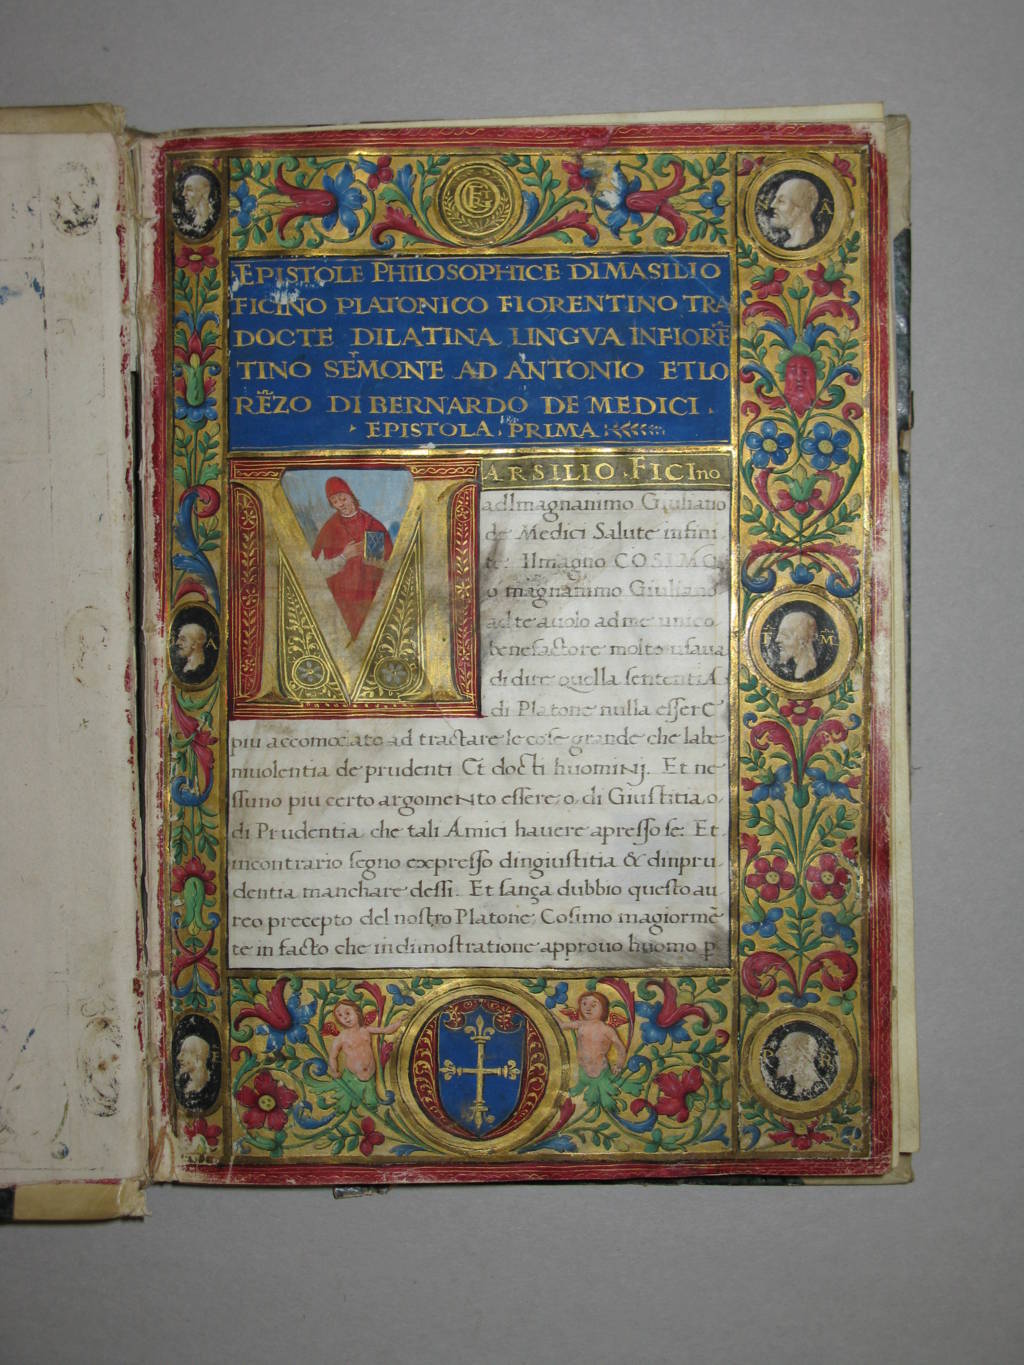 EPISTOLE PHILOSOPHICE DI MASILIO
FICINO PLATONICO FIORENTINO TRA
DOCTE DILATINA LINGVA INFIORE̅
TINO SE̅MONE AD ANTONIO ET LO
RE̅ZO DI BERNARDO DE MEDICI .
EPISTOLA . PRIMA .
MARSILIO . FICIno
adlmagnanimo Giuliano
de Medici Salute infini
te: Ilmagno COSIMO
o magnanimo Giuliano
ad te auolo ad me unico
benefactore molto usaua
di dire quella sententiA
di Platone nulla esser E
piu accomodato ad tractare le cose grande che labe
niuolentia de prudenti Et docti huomiNj. Et ne
ssuno piu certo argomeNto essere .o. di Giustitia .o.
di Prudentia che tali Amici hauere apresso se: Et
incontrario segno expresso dingiustitia & dinpru
dentia manchare dessi. Et sança dubbio questo au
reo precepto del nostro Platone; Cosimo magiorme̅
te in facto che in dimostratione approuo huomo p